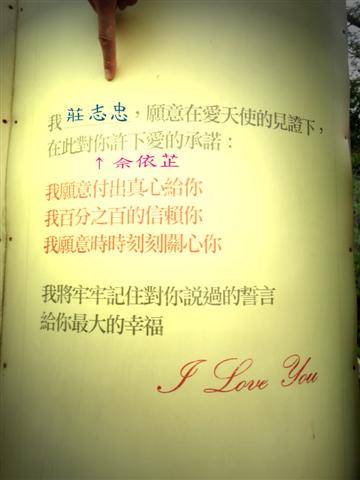 我 莊志忠,願意在愛天使的見證下,
在此對你許下愛的承諾:
↑佘依芷
我願意付出真心給你
我百分之百的信賴你
我願意時時刻刻關心你
我將牢牢記住對你說過的誓言
給你最大的幸福
I Love You